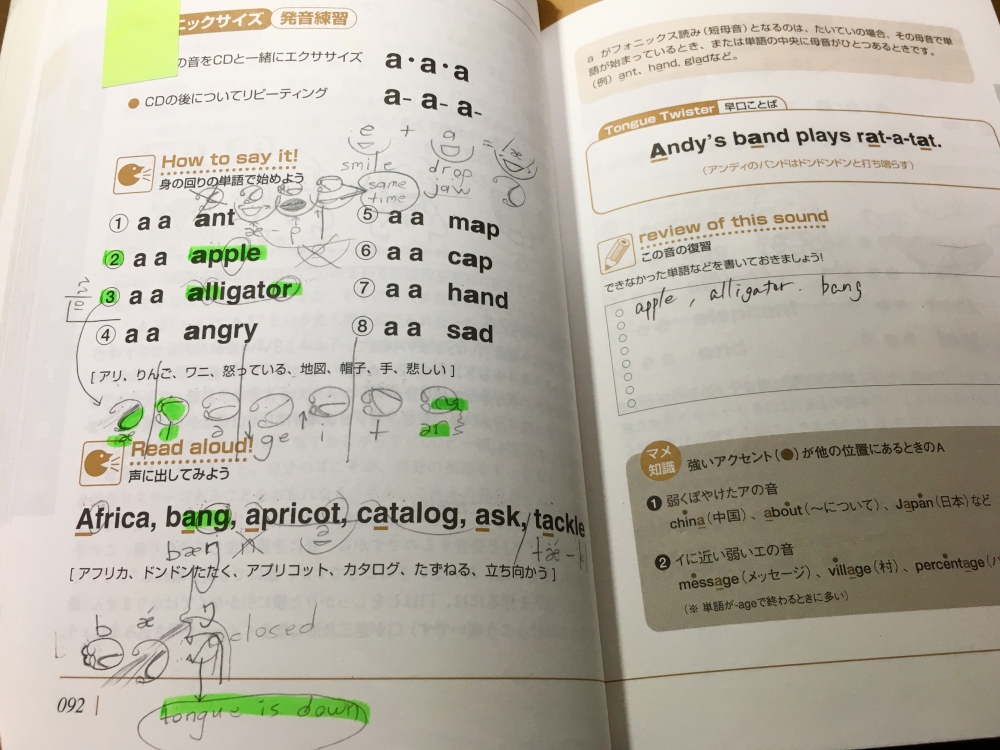 ニックサイズ 発音練習
の音をCDと一緒にエクササイズ a・a・a
● CDの後についてリピーティング a- a- a-
e + a = æ
smile drop jaw
same time
How to say it!
身の回りの単語で始めよう
① a a ant
② a a apple
③ a a alligator
④ a a angry
⑤ a a map
⑥ a a cap
⑦ a a hand
⑧ a a sad
[アリ、りんご、ワニ、怒っている、地図、帽子、手、悲しい]
æ l a ge i t
Read aloud!
声に出してみよう
Africa, bang, apricot, catalog, ask, tackle
bæŋ
[アフリカ、ドンドンたたく、アプリコット、カタログ、たずねる、立ち向かう]
b æ ŋ
closed
tongue is down
092
a がフォニックス読み(短母音)となるのは、たいていの場合、その母音で単
語が始まっているとき、または単語の中央に母音がひとつあるときです。
(例) ant、hand、gladなど。
Tongue Twister 早口ことば
Andy's band plays rat-a-tat.
(アンディのバンドはドンドンドンと打ち鳴らす)
review of this sound
この音の復習
できなかった単語などを書いておきましょう!
apple, alligator. bang
マメ
知識
強いアクセント(●)が他の位置にあるときのA
❶ 弱くぼやけたアの音
china(中国)、about(〜について)、Japan(日本)など
❷ イに近い弱いエの音
message(メッセージ)、village(村)、percentage(パ
(※ 単語が-ageで終わるときに多い)